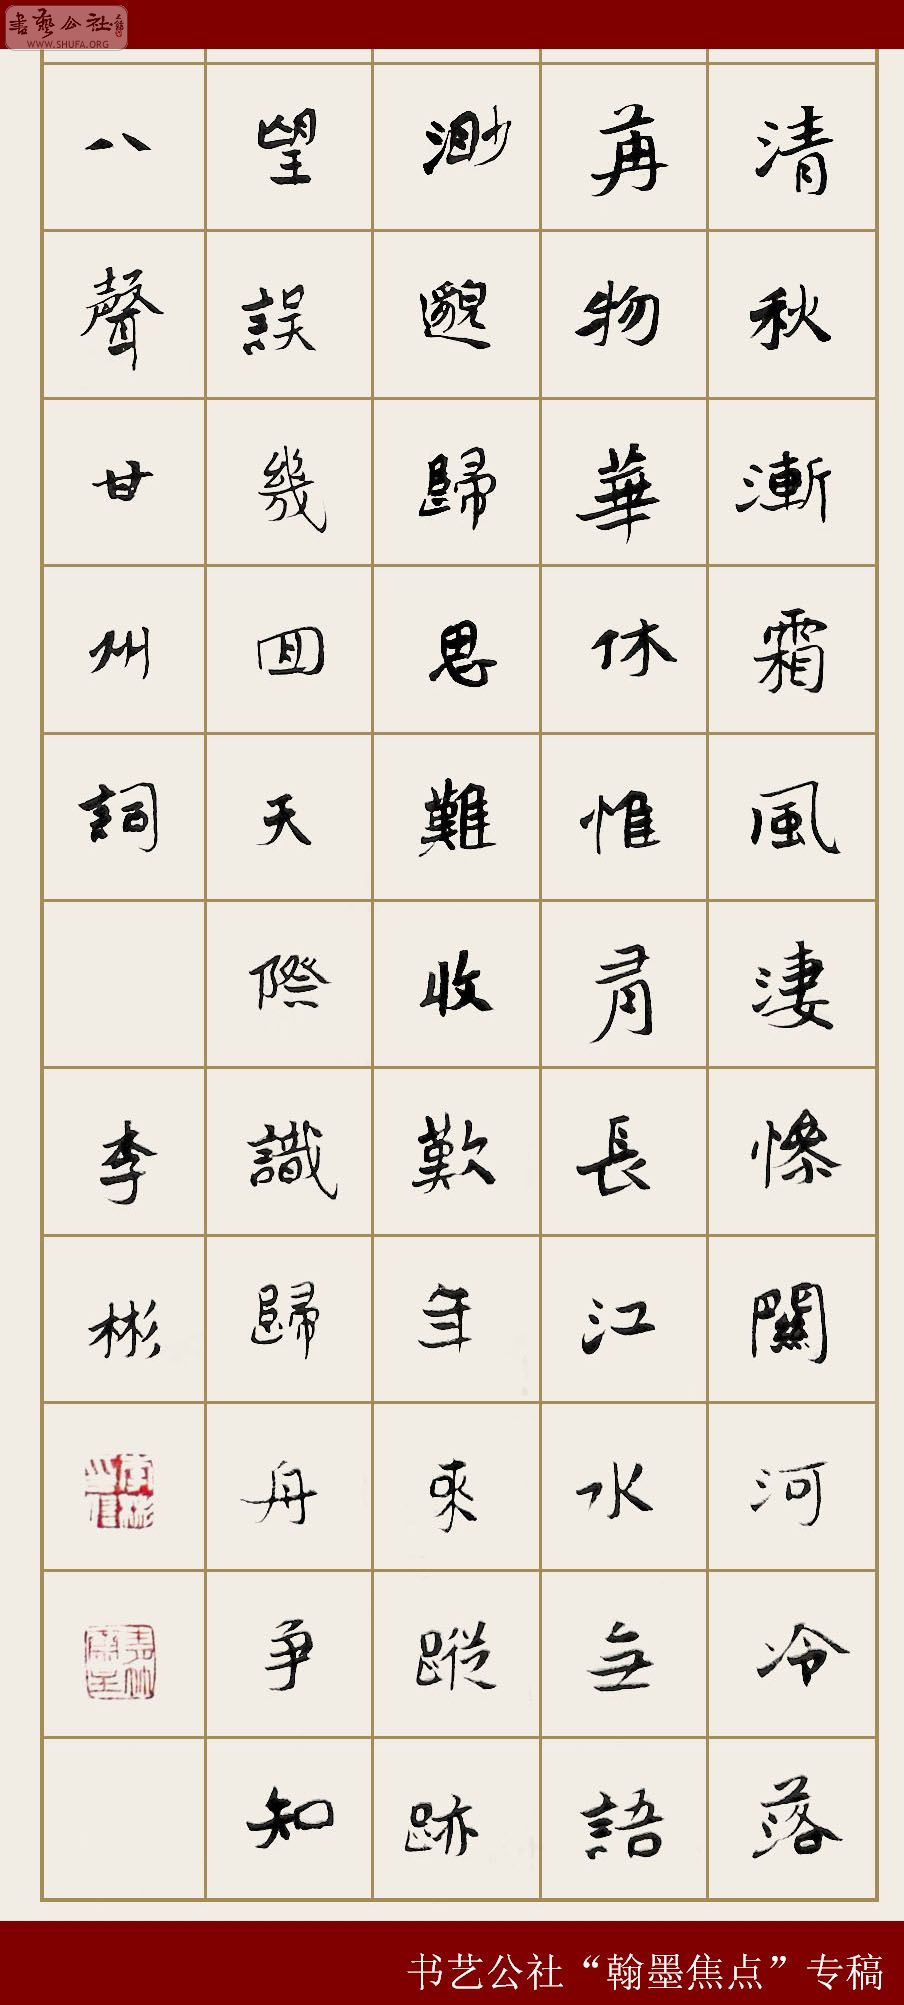 书艺公社
WWW.SHUFA.ORG
清秋漸霜風淒慘關河冷落
苒物華休惟有長江水無語
渺邈歸思難收歎年來蹤跡
望誤幾回天際識歸舟爭知
八聲甘州詞 李彬
书艺公社“翰墨焦点”专稿